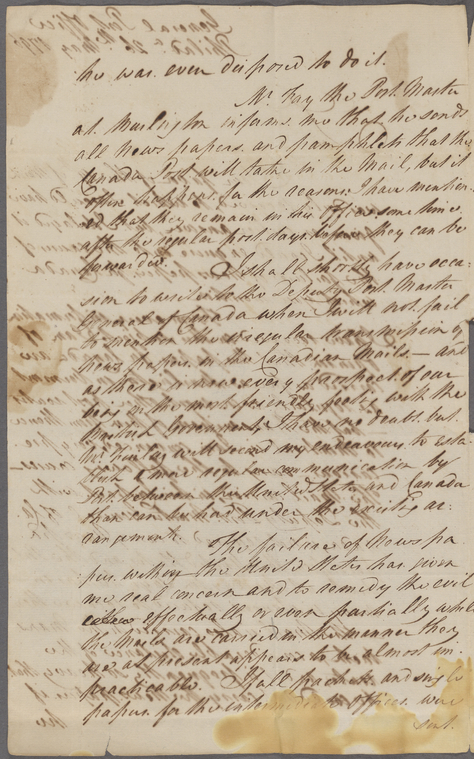 he was even disposed to do it.
Mr Fay the Post Master
at Burlington informs me that he sends
all News papers and pamphlets that the
Canada Post will take in the Mail, but it
often happens for the reasons I have mention
ed that they remain in his Office sometime
after the regular post days before they can be
forwarded.
I shall shortly have occa-
sion to write to the Deputy Post Master
General of Canada when I will not fail
to mention the irregular transmission of
news papers in the Canadian Mails — and
as there is now every prospect of our
being on the most friendly footing with the
British Government I have no doubt but
Mr Finlay will second my endeavours to esta-
blish a more regular communication by
Post between the United States and Canada
than can be had under the existing ar-
rangement.
The failure of News pa
pers within the United States has given
me real concern and to remedy the evil
either effectually or even partially while
the Mails are carried in the manner they
are at present appears to be almost im-
practicable. If all packets and single
papers for the intermediate offices were
sent
General Post Office
Philad<sup>a</sup> 26 May 1795